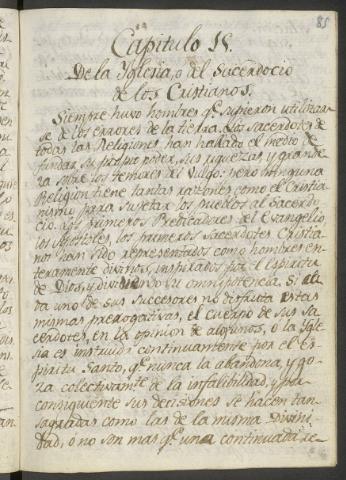 85
Capitulo 15.
De la Yglesia, o del Sacerdocio
de los Cristianos.
Siempre huvo hombres qe. supieron utilizar-
se de los errores de la tierra. Los Sacerdotes de
todas las Religiones han hallado el medio de
fundar su propio poder, sus riquezas, y grande-
za sobre los temores del Vulgo: pero ninguna
Religion tiene tantas razones como el Cristia-
nismo para sujetar los pueblos al Sacerdo-
cio. Los primeros Predicadores del Evangelio,
los Apostoles, los primeros Sacerdotes Cristia-
nos han sido representados como hombres en-
teramente divinos, inspirados por el Espiritu
de Dios, y dividiendo su omnipotencia. Si ca-
da uno de sus succesores no disfruta estas
mismas prerrogativas, el cuerpo de sus Sa-
cerdotes, en la opinion de algunos, o la Ygle-
sia es instruida continuamente por el Es-
piritu Santo, qe. nunca la abandona, y go-
za colectivamte. de la infalibilidad, y por
consiguiente sus decisiones se hacen tan
sagradas como las de la misma Divini-
dad, o no son mas qe. una continuada re-